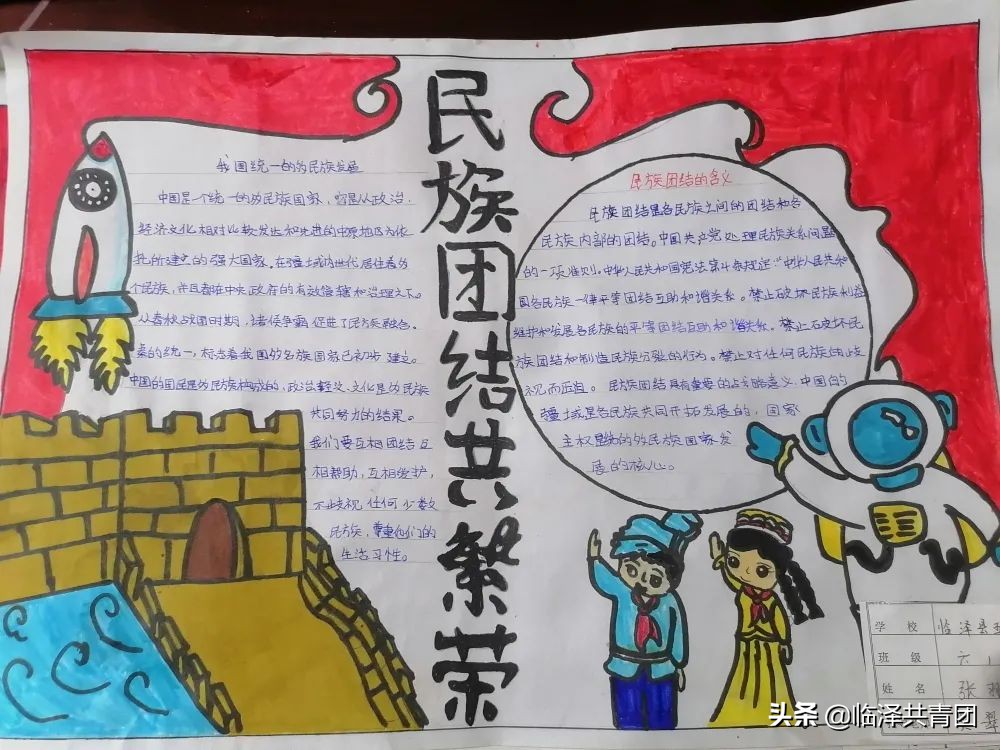 民族团结共繁荣
我国统一的多民族发展
中国是个统一的多民族国家，容是从政治，
经济文化相对比较发达和先进的中原地区为依
托所建立的强大国家。在疆域内世代居住着多
个民族，并且都在中央政府的有效管辖和治理之下。
从春秋战国时期，诸侯争霸促进了民族融合。
秦的统一，标志着我国的多民族国家已初步建立。
中国的国民是多民族构成的，政治经济文化是多民族
共同努力的结果。
我们要互相团结互
相帮助，互相爱护，
不歧视任何少数
民族，尊重他们的
生活习性。
民族团结的含义
民族团结是各民族之间的团结和各
民族内部的团结。中国共产党处理民族关系问题
的一项准则。中华人民共和国宪法第4条规定："中华人民共和
国各民族一律平等团结互助和谐关系。禁止破坏民族利益
维护和发展各民族的平等团结互助和谐关系。禁止破坏民
族团结和制造民族分裂的行为。禁止对任何民族的歧
视而压迫。民族团结具有重要的战略意义，中国的
疆土域是各民族共同开拓发展的，国家
主权是统的多民族国家发
展的核心。
学校 临泽县
班级 六
姓名 张
头条 @临泽共青团